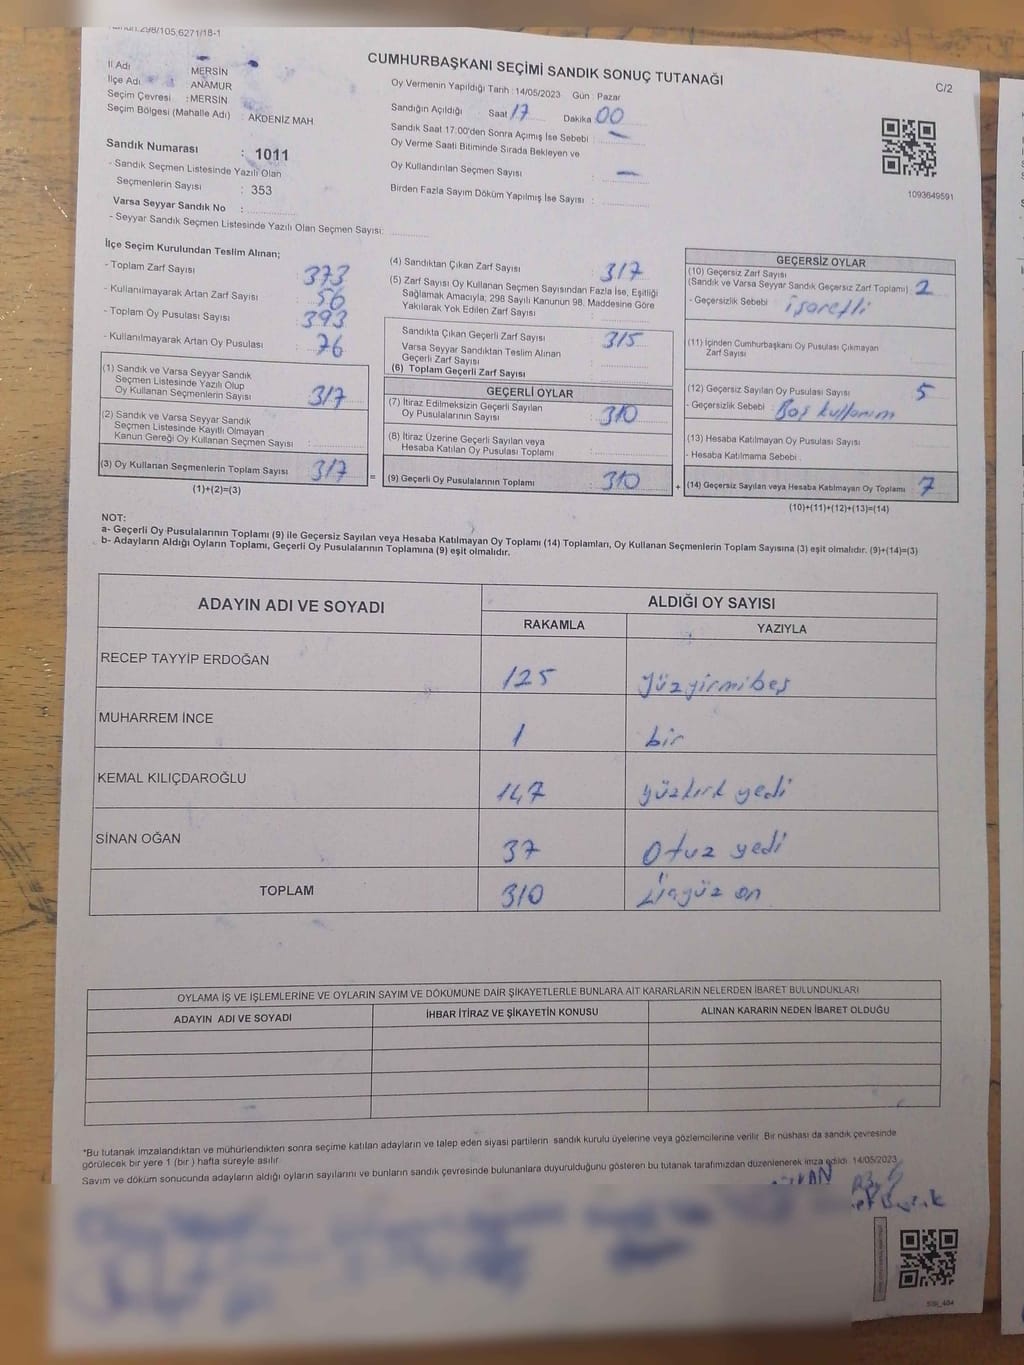 298/105,6271/18-1
CUMHURBAŞKANI SEÇİMİ SANDIK SONUÇ TUTANAĞI
C/2
İl Adı MERSİN
İlçe Adı ANAMUR
Seçim Çevresi : MERSİN
Seçim Bölgesi (Mahalle Adı) : AKDENİZ MAH.
Sandık Numarası : 1011
- Sandık Seçmen Listesinde Yazılı Olan
Seçmenlerin Sayısı : 353
Varsa Seyyar Sandık No :
- Seyyar Sandık Seçmen Listesinde Yazılı Olan Seçmen Sayısı:
Oy Vermenin Yapıldığı Tarih : 14/05/2023 Gün : Pazar
Sandığın Açıldığı Saat 17 Dakika 00
Sandık Saat 17.00'den Sonra Açımış İse Sebebi : —
Oy Verme Saati Bitiminde Sırada Bekleyen ve
Oy Kullandırılan Seçmen Sayısı : —
Birden Fazla Sayım Döküm Yapılmış İse Sayısı :
1093649591
İlçe Seçim Kurulundan Teslim Alınan;
- Toplam Zarf Sayısı : 373
- Kullanılmayarak Artan Zarf Sayısı : 56
- Toplam Oy Pusulası Sayısı : 393
- Kullanılmayarak Artan Oy Pusulası : 76
(1) Sandık ve Varsa Seyyar Sandık
Seçmen Listesinde Yazılı Olup
Oy Kullanan Seçmenlerin Sayısı : 317
(2) Sandık ve Varsa Seyyar Sandık
Seçmen Listesinde Kayıtlı Olmayan
Kanun Gereği Oy Kullanan Seçmen Sayısı :
(3) Oy Kullanan Seçmenlerin Toplam Sayısı 317
(1)+(2)=(3)
(4) Sandıktan Çıkan Zarf Sayısı 317
(5) Zarf Sayısı Oy Kullanan Seçmen Sayısından Fazla İse, Eşitliği
Sağlamak Amacıyla; 298 Sayılı Kanunun 98. Maddesine Göre
Yakılarak Yok Edilen Zarf Sayısı :
Sandıkta Çıkan Geçerli Zarf Sayısı 315
Varsa Seyyar Sandıktan Teslim Alınan
Geçerli Zarf Sayısı :
(6) Toplam Geçerli Zarf Sayısı
GEÇERLİ OYLAR
(7) İtiraz Edilmeksizin Geçerli Sayılan
Oy Pusulalarının Sayısı : 310
(8) İtiraz Üzerine Geçerli Sayılan veya
Hesaba Katılan Oy Pusulası Toplamı :
(9) Geçerli Oy Pusulalarının Toplamı : 310
GEÇERSİZ OYLAR
(10) Geçersiz Zarf Sayısı
(Sandık ve Varsa Seyyar Sandık Geçersiz Zarf Toplamı) 2
- Geçersizlik Sebebi : işaretli
(11) İçinden Cumhurbaşkanı Oy Pusulası Çıkmayan
Zarf Sayısı :
(12) Geçersiz Sayılan Oy Pusulası Sayısı : 5
- Geçersizlik Sebebi : Boş kullanım
(13) Hesaba Katılmayan Oy Pusulası Sayısı :
- Hesaba Katılmama Sebebi :
(14) Geçersiz Sayılan veya Hesaba Katılmayan Oy Toplamı : 7
(10)+(11)+(12)+(13)=(14)
NOT:
a- Geçerli Oy Pusulalarının Toplamı (9) ile Geçersiz Sayılan veya Hesaba Katılmayan Oy Toplamı (14) Toplamları, Oy Kullanan Seçmenlerin Toplam Sayısına (3) eşit olmalıdır. (9)+(14)=(3)
b- Adayların Aldığı Oyların Toplamı, Geçerli Oy Pusulalarının Toplamına (9) eşit olmalıdır.
ADAYIN ADI VE SOYADI ALDIĞI OY SAYISI
RAKAMLA YAZIYLA
RECEP TAYYİP ERDOĞAN 125 yüzyirmibeş
MUHARREM İNCE 1 bir
KEMAL KILIÇDAROĞLU 147 yüzkırk yedi
SİNAN OĞAN 37 Otuz yedi
TOPLAM 310 üçyüz on
OYLAMA İŞ VE İŞLEMLERİNE VE OYLARIN SAYIM VE DÖKÜMÜNE DAİR ŞİKAYETLERLE BUNLARA AİT KARARLARIN NELERDEN İBARET BULUNDUKLARI
ADAYIN ADI VE SOYADI İHBAR İTİRAZ VE ŞİKAYETİN KONUSU ALINAN KARARIN NEDEN İBARET OLDUĞU
*Bu tutanak imzalandıktan ve mühürlendikten sonra seçime katılan adayların ve talep eden siyasi partilerin sandık kurulu üyelerine veya gözlemcilerine verilir. Bir nüshası da sandık çevresinde
görülecek bir yere 1 (bir) hafta süreyle asılır.
Sayım ve döküm sonucunda adayların aldığı oyların sayılarını ve bunların sandık çevresinde bulunanlara duyurulduğunu gösteren bu tutanak tarafımızdan düzenlenerek imza edildi. 14/05/2023